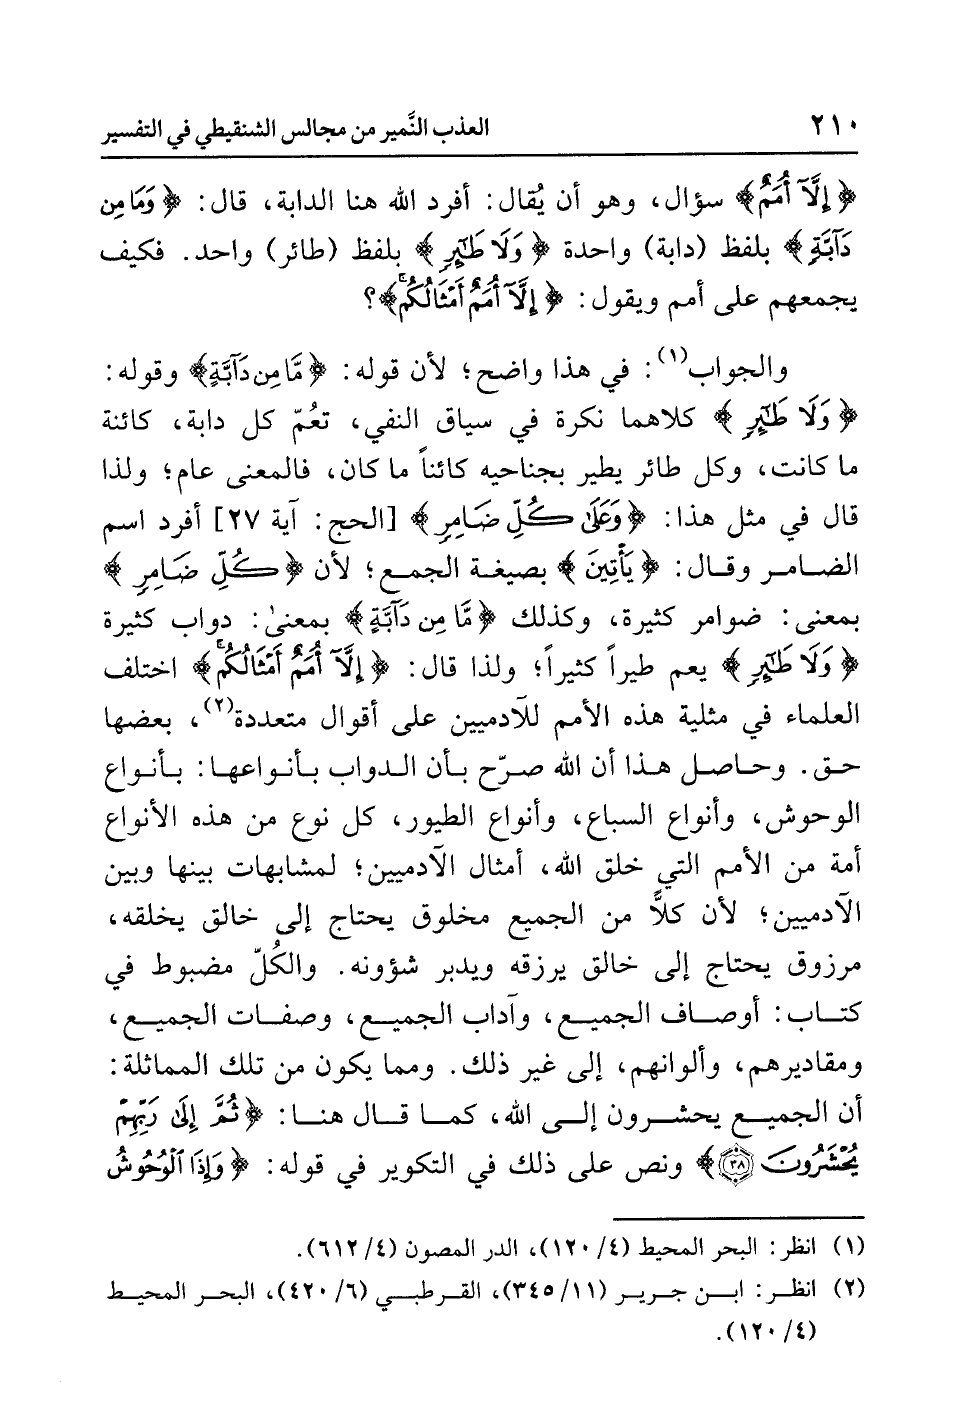 ٢١٠ العذب النَّمير من مجالس الشنقيطي في التفسير
﴿ إِلَّآ أُمَمٌ﴾ سؤال، وهو أن يُقال: أفرد الله هنا الدابة، قال: ﴿ وَمَا مِن
دَآبَّةٍ ﴾ بلفظ (دابة) واحدة ﴿ وَلَا طَٰٓئِرٍ ﴾ بلفظ (طائر) واحد. فكيف
يجمعهم على أمم ويقول: ﴿ إِلَّآ أُمَمٌ أَمۡثَالُكُمۚ﴾؟
والجواب(١): في هذا واضح؛ لأن قوله: ﴿ مَّا مِن دَآبَّةٍ﴾ وقوله:
﴿ وَلَا طَٰٓئِرٍ ﴾ كلاهما نكرة في سياق النفي، تعُمّ كل دابة، كائنة
ما كانت، وكل طائر يطير بجناحيه كائناً ما كان، فالمعنى عام؛ ولذا
قال في مثل هذا: ﴿ وَعَلَىٰ كُلِّ ضَامِرٍ ﴾ [الحج: آية ٢٧] أفرد اسم
الضامر وقال: ﴿ يَأۡتِينَ ﴾ بصيغة الجمع؛ لأن ﴿ كُلِّ ضَامِرٍ ﴾
بمعنى: ضوامر كثيرة، وكذلك ﴿ مَّا مِن دَآبَّةٍ ﴾ بمعنىٰ: دواب كثيرة
﴿ وَلَا طَٰٓئِرٍ ﴾ يعم طيراً كثيراً؛ ولذا قال: ﴿ إِلَّآ أُمَمٌ أَمۡثَالُكُمۚ ﴾ اختلف
العلماء في مثلية هذه الأمم للآدميين على أقوال متعددة(٢)، بعضها
حق. وحاصل هذا أن الله صرّح بأن الدواب بأنواعها: بأنواع
الوحوش، وأنواع السباع، وأنواع الطيور، كل نوع من هذه الأنواع
أمة من الأمم التي خلق الله، أمثال الآدميين؛ لمشابهات بينها وبين
الآدميين؛ لأن كلاًّ من الجميع مخلوق يحتاج إلى خالق يخلقه،
مرزوق يحتاج إلى خالق يرزقه ويدبر شؤونه. والكُلّ مضبوط في
كتاب: أوصاف الجميع، وآداب الجميع، وصفات الجميع،
ومقاديرهم، وألوانهم، إلى غير ذلك. ومما يكون من تلك المماثلة:
أن الجميع يحشرون إلى الله، كما قال هنا: ﴿ ثُمَّ إِلَىٰ رَبِّهِمۡ
يُحۡشَرُونَ ٣٨﴾ ونص على ذلك في التكوير في قوله: ﴿ وَإِذَا ٱلۡوُحُوشُ
(١) انظر: البحر المحيط (٤/ ١٢٠)، الدر المصون (٤/ ٦١٢).
(٢) انظر: ابن جرير (١١/ ٣٤٥)، القرطبي (٦/ ٤٢٠)، البحر المحيط
(٤/ ١٢٠).